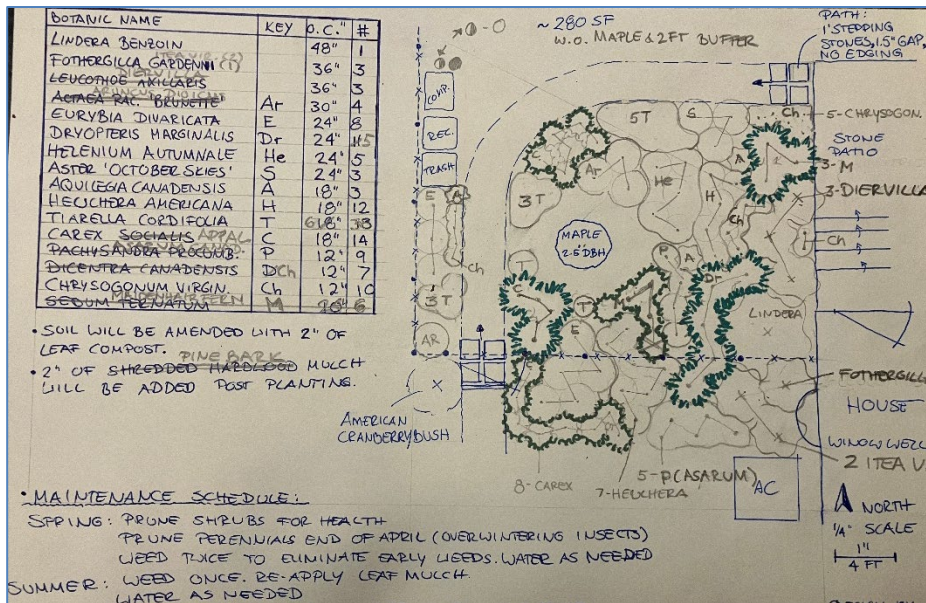 BOTANIC NAME KEY O.C." #
LINDERA BENZOIN 48" 1
ITEA VIR. (2)
FOTHERGILLA GARDENII (1) 36" 3
DIERVILLA
LEUCOTHOE AXILLARIS 36" 3
ARUNCUS DIOICUS
ACTAEA RAC. 'BRUNETTE' Ar 30" 4
EURYBIA DIVARICATA E 24" 8
DRYOPTERIS MARGINALIS Dr 24" 5
HELENIUM AUTUMNALE He 24" 5
ASTER 'OCTOBER SKIES' S 24" 3
AQUILEGIA CANADENSIS A 18" 3
HEUCHERA AMERICANA H 18" 12
TIARELLA CORDIFOLIA T 18"
CAREX SOCIALIS APPAL C 18" 14
PACHYSANDRA PROCUMB. P 12" 9
DICENTRA CANADENSIS D Ch 12" 7
CHRYSOGONUM VIRGIN. Ch 12" 10
MAIDENHAIR FERN
SEDUM TERNATUM M 6
• SOIL WILL BE AMENDED WITH 2" OF
LEAF COMPOST.
PINE BARK
• 2" OF SHREDDED HARDWOOD MULCH
WILL BE ADDED POST PLANTING.
~280 SF
W.O. MAPLE & 2FT BUFFER
PATH:
1' STEPPING
STONES, 1.5" GAP,
NO EDGING
COMP.
REC.
TRASH
5T
S
Ch
5-CHRYSOGON.
STONE
PATIO
3-M
3-DIERVILLA
Ar
He
A
H
E
A
3T
Ch
Ch
MAPLE
2.5" DBH
P
A
Dr
Ch
T
C
T
E
3T
AR
LINDERA
FOTHERGILL
HOUSE
AMERICAN
CRANBERRYBUSH
WINOW WELL
2 ITEA V
8-CAREX
7-HEUCHERA
5-P(ASARUM)
AC
NORTH
1/4" SCALE
1"
4 FT
• MAINTENANCE SCHEDULE:
SPRING: PRUNE SHRUBS FOR HEALTH
PRUNE PERENNIALS END OF APRIL (OVERWINTERING INSECTS)
WEED TWICE TO ELIMINATE EARLY WEEDS. WATER AS NEEDED
SUMMER: WEED ONCE. RE-APPLY LEAF MULCH.
WATER AS NEEDED